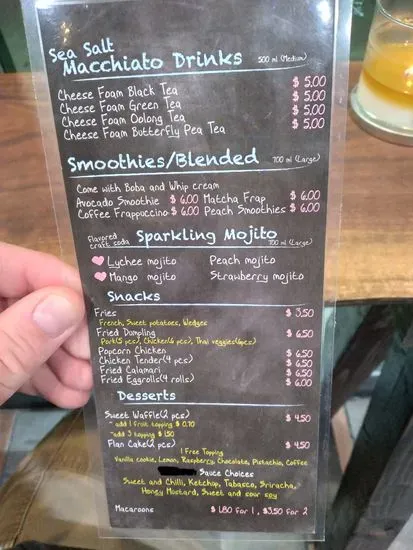 Sea Salt
Macchiato Drinks 500 ml (Medium)
Cheese Foam Black Tea $ 5.00
Cheese Foam Green Tea $ 5.00
Cheese Foam Oolong Tea $ 5.00
Cheese Foam Butterfly Pea Tea $ 5.00
Smoothies/Blended 700 ml (Large)
Come with Boba and Whip cream
Avocado Smoothie $ 6.00 Matcha Frap $ 6.00
Coffee Frappuccino $ 6.00 Peach Smoothies $ 6.00
flavored
craft soda Sparkling Mojito 700 ml (Large)
Lychee mojito Peach mojito
Mango mojito Strawberry mojito
Snacks
Fries $ 3.50
French, Sweet potatoes, Wedges
Fried Dumpling $ 6.50
Pork(5 pcs), Chicken(6 pcs), Thai veggies(6pcs)
Popcorn Chicken $ 6.50
Chicken Tender(4 pcs) $ 6.50
Fried Calamari $ 6.50
Fried Eggrolls(4 rolls) $ 6.00
Desserts
Sweet Waffle(2 pcs) $ 4.50
~ add 1 fruit topping $ 0.70
~add 3 topping $ 1.50
Flan Cake(2 pcs) $ 4.50
1 Free Topping
Vanilla cookie, Lemon, Raspberry, Chocolate, Pistachio, Coffee
Sauce Choices
Sweet and Chilli, Ketchup, Tabasco, Sriracha,
Honey Mustard, Sweet and sour soy
Macaroons $ 1.80 for 1 , $3.50 for 2